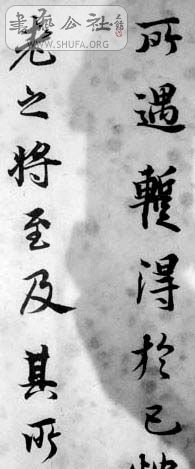 所遇暫得於己快
老之将至及其所
書藝公社
WWW.SHUFA.ORG